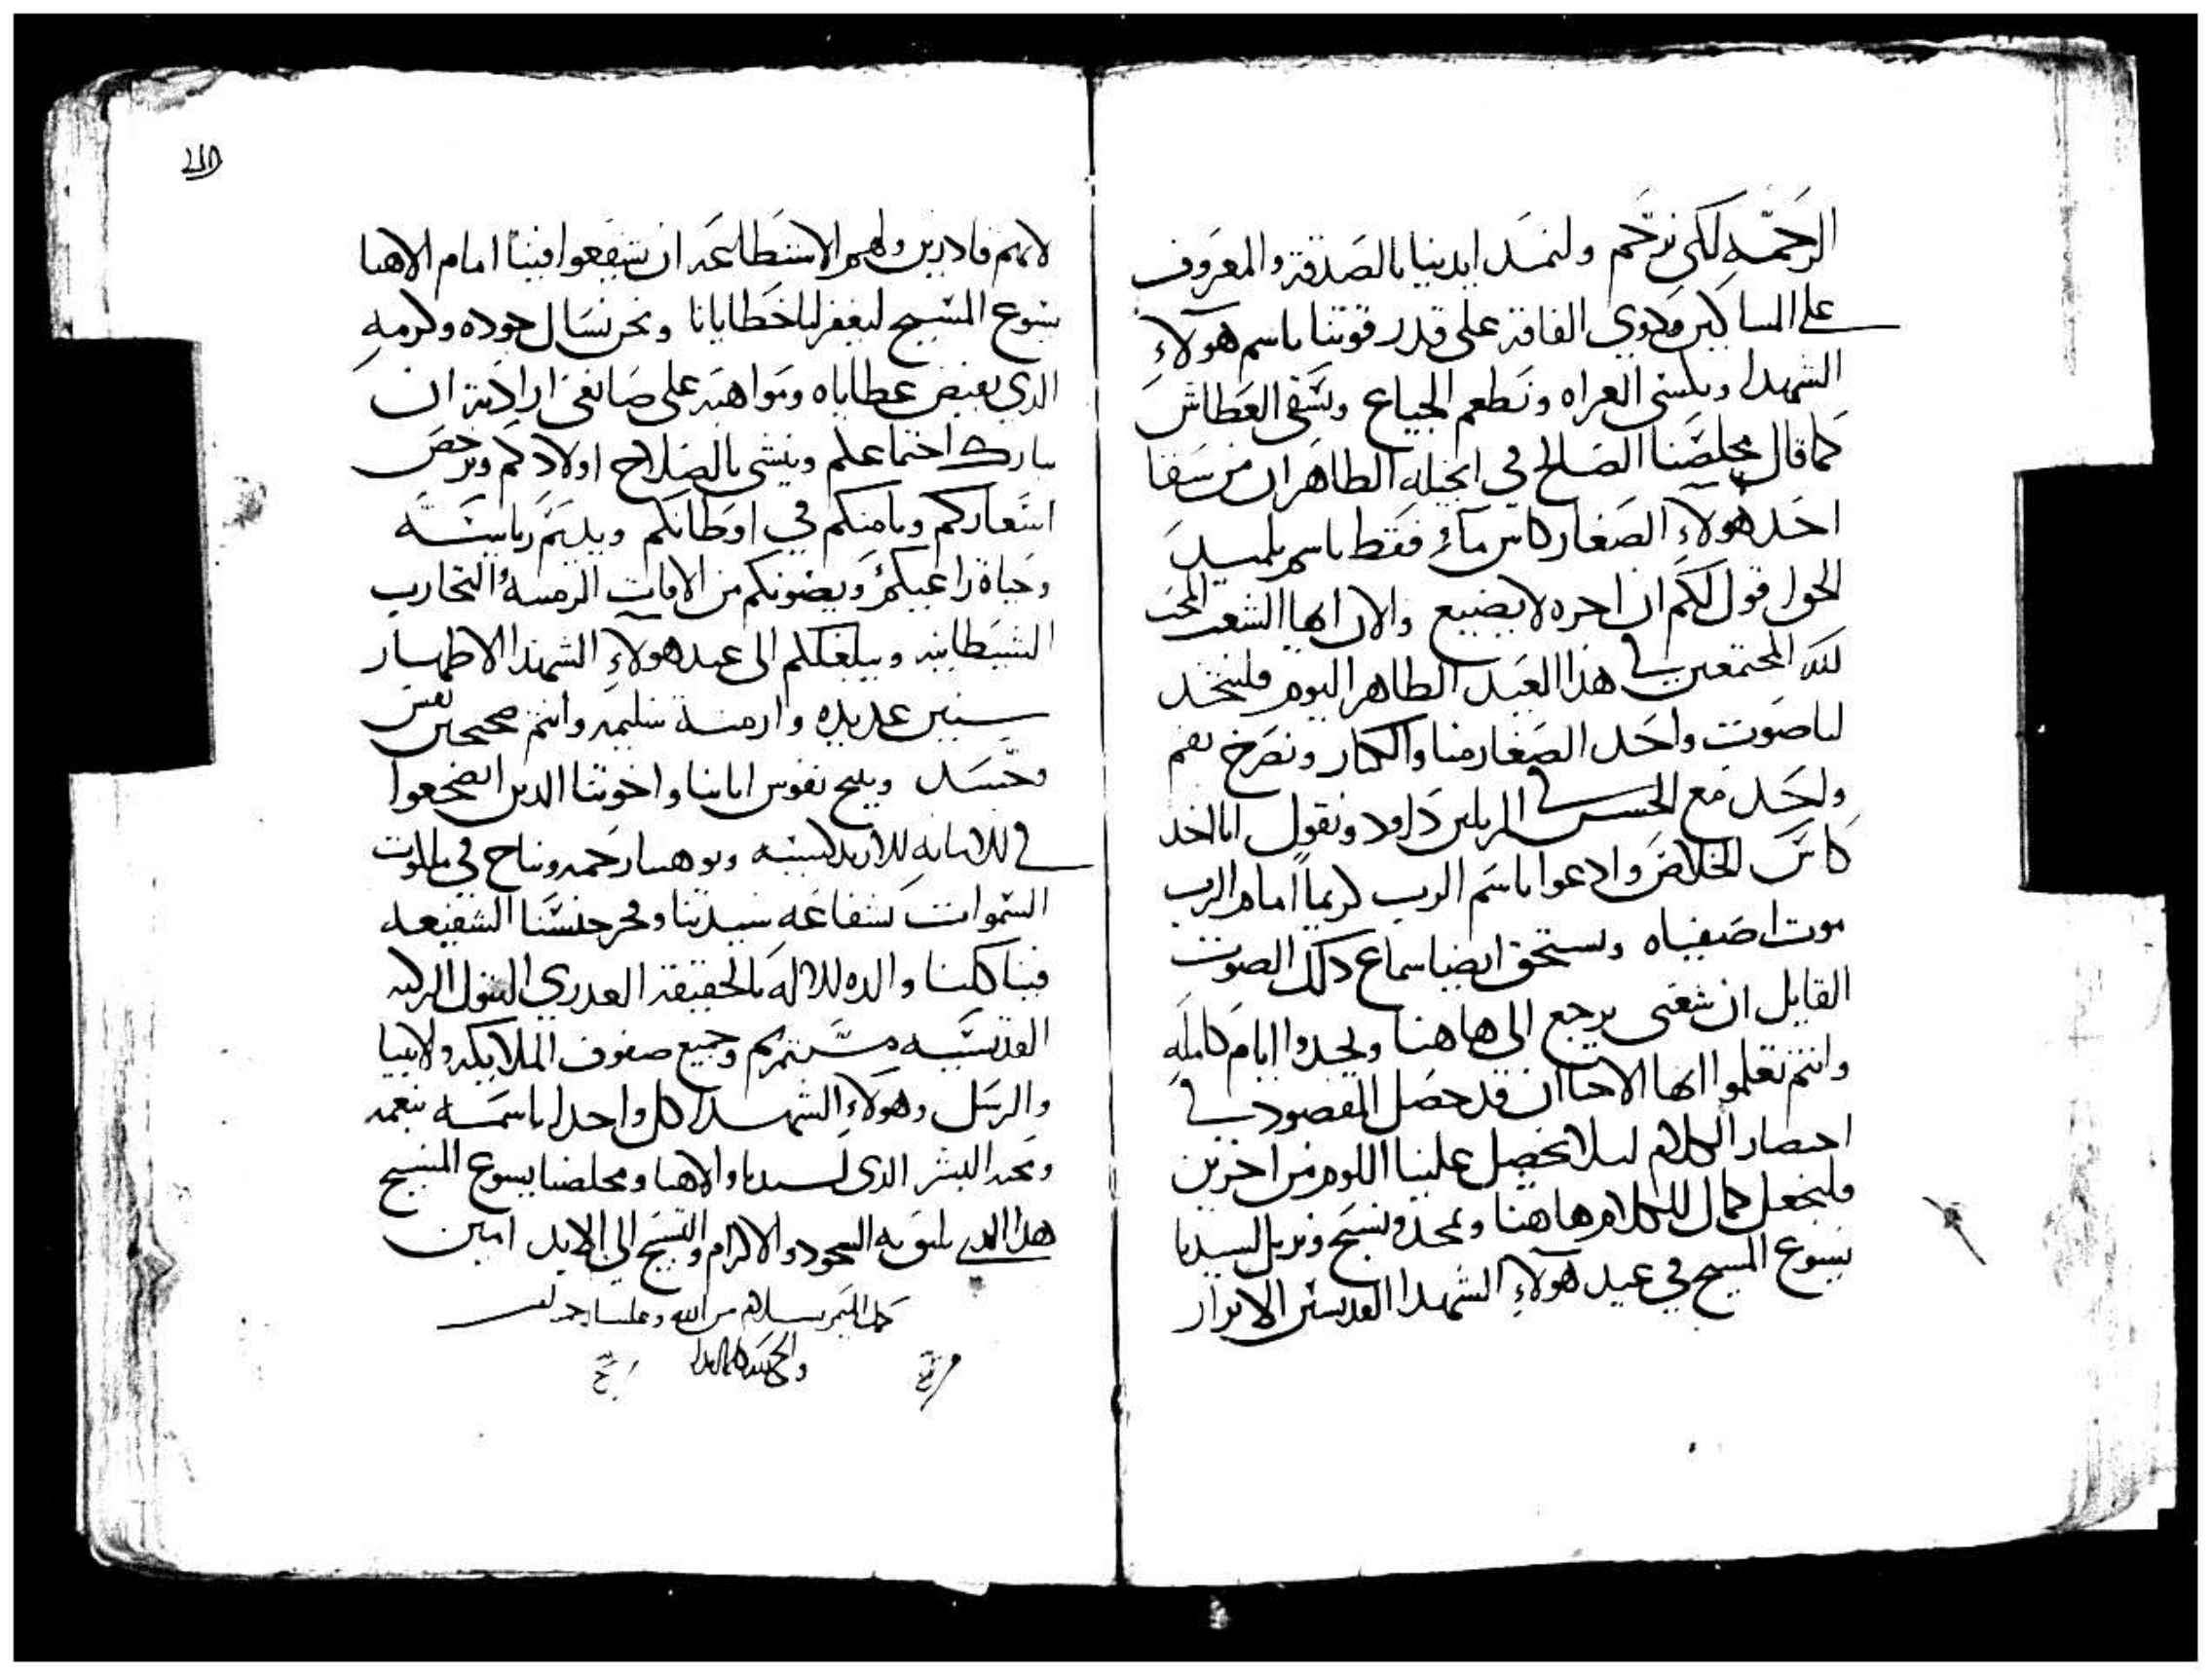 الرحمه لكي نرحم ولنمد ايدينا بالصدقة والمعروف
على المساكين وذوي الفاقة على قدر قوتنا باسم هولاءِ
الشهدا ونكسي العراه ونطعم الجياع ونسقي العطاش
كما قال مخلصنا الصالح في انجيله الطاهر ان من سقا
احد هولاءِ الصغار كاس ماءٍ فقط باسم تلميد
الحق اقول لكم ان اجره لا يضيع والان ايها الشعب المحب
لله المجتمعين في هذا العيد الطاهر اليوم فلنتخد
لنا صوت واحد الصغار منا والكبار ونصرخ بفم
واحد مع المرتل داود ونقول انا اخد
كاس الخلاص وادعوا باسم الرب كريماً امام الرب
موت اصفياه ونستحق ايضا سماع دلك الصوت
القايل ان شعبي يرجع الى هاهنا ويجدوا ايام كامله
وانتم تعلموا ايها الاحبا ان قد حصل المقصود في
اختصار الكلام ليلا يحصل علينا اللوم من اخرين
فلنجعل كمال الكلام هاهنا ونمجد ونسبح ونرتل لسيدنا
يسوع المسيح في عيد هولاءِ الشهدا القديسين الابرار
لانهم قادرين ولهم الاستطاعه ان يشفعوا فينا امام الاهنا
يسوع المسيح ليغفر لنا خطايانا ونحن نسال جوده وكرمه
الدي يفيض عطاياه ومواهبه على صانعي ارادته ان
يبارك اجتماعكم وينشي بالصلاح اولادكم ويرخص
اسعاركم ويامنكم في اوطانكم ويديم رياسة
وحياة راعيكم ويصونكم من الافات الرمسه والتجارب
الشيطانيه ويبلغكم الى عيد هولاءِ الشهدا الاطهار
سنين عديده وازمنة سليمه وانتم صحيحين نفس
وجسد وينيح نفوس ابايناا واخوتنا الدين انضجعوا
في الامانه الارتدكسيه ويوهبنا رحمه ونياح في ملكوت
السموات بشفاعة سيدتنا وفخر جنسنا الشفيعه
فينا كلنا والدة الاله بالحقيقة العدري البتول الزكيه
القديسه مرتمريم وجميع صفوف الملايكه والانبيا
والرسل وهولاءِ الشهدا كل واحدا باسمه بنعمه
ومحبة البشر الدي لسيدنا والاهنا ومخلصنا يسوع المسيح
هذا الدي يليق به السجود والاكرام والتسبيح الى الابد امين
كمل الميمر بسلام من الله وعلينا رحمته
والحمد لله دايما ابدا